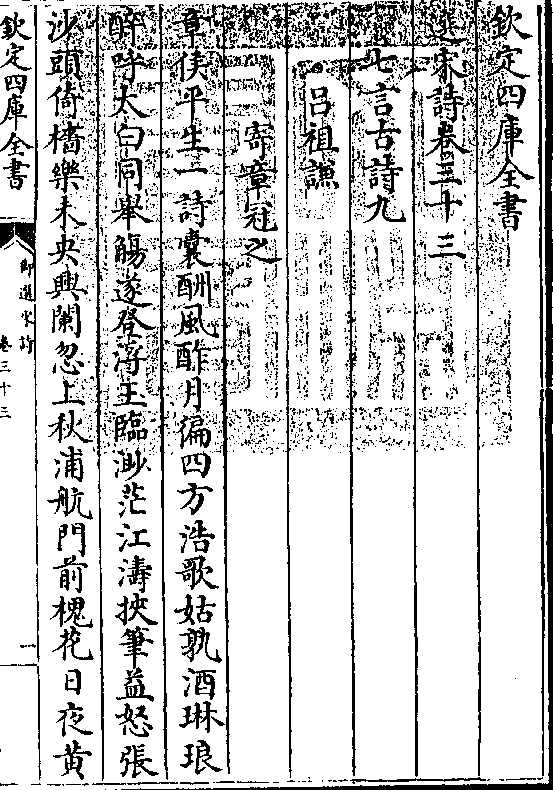 欽定四庫全書
選宋詩卷三十三
七言古詩九
呂祖謙
寄章冠之
章侯平生一詩囊酬風酢月徧四方浩歌姑孰酒琳琅
醉呼太白同舉觴遂登浮玉臨渺茫江濤挾筆益怒張
沙頭倚檣樂未央興闌忽上秋浦航門前槐花日夜黃
欽定四庫全書
御選宋詩
卷三十三
一